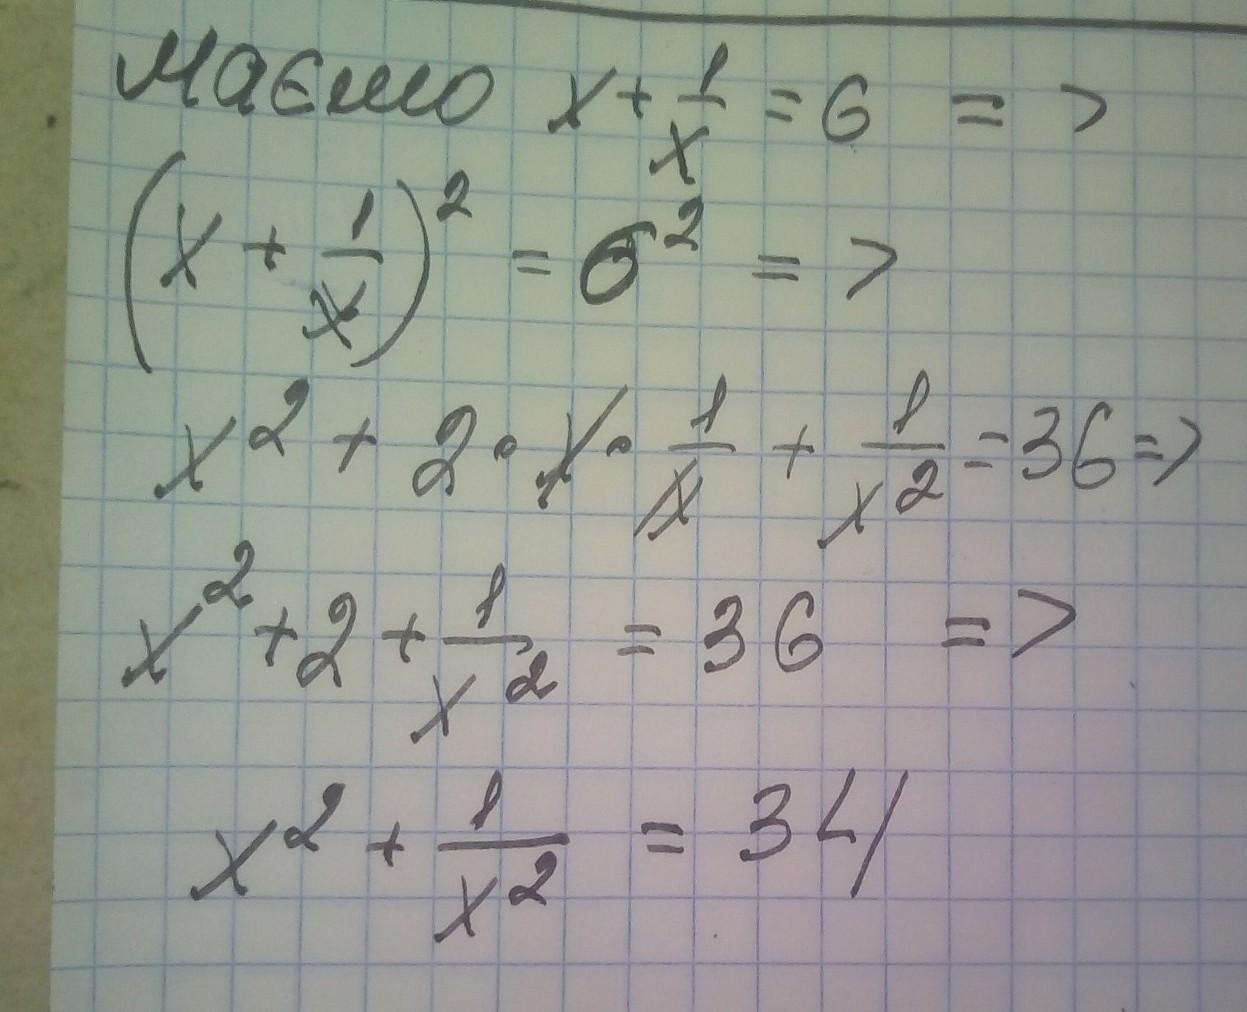 Маємо x + 1/x = 6 =>
(x + 1/x)² = 6² =>
x² + 2 · x · 1/x + 1/x² = 36 =>
x² + 2 + 1/x² = 36 =>
x² + 1/x² = 34